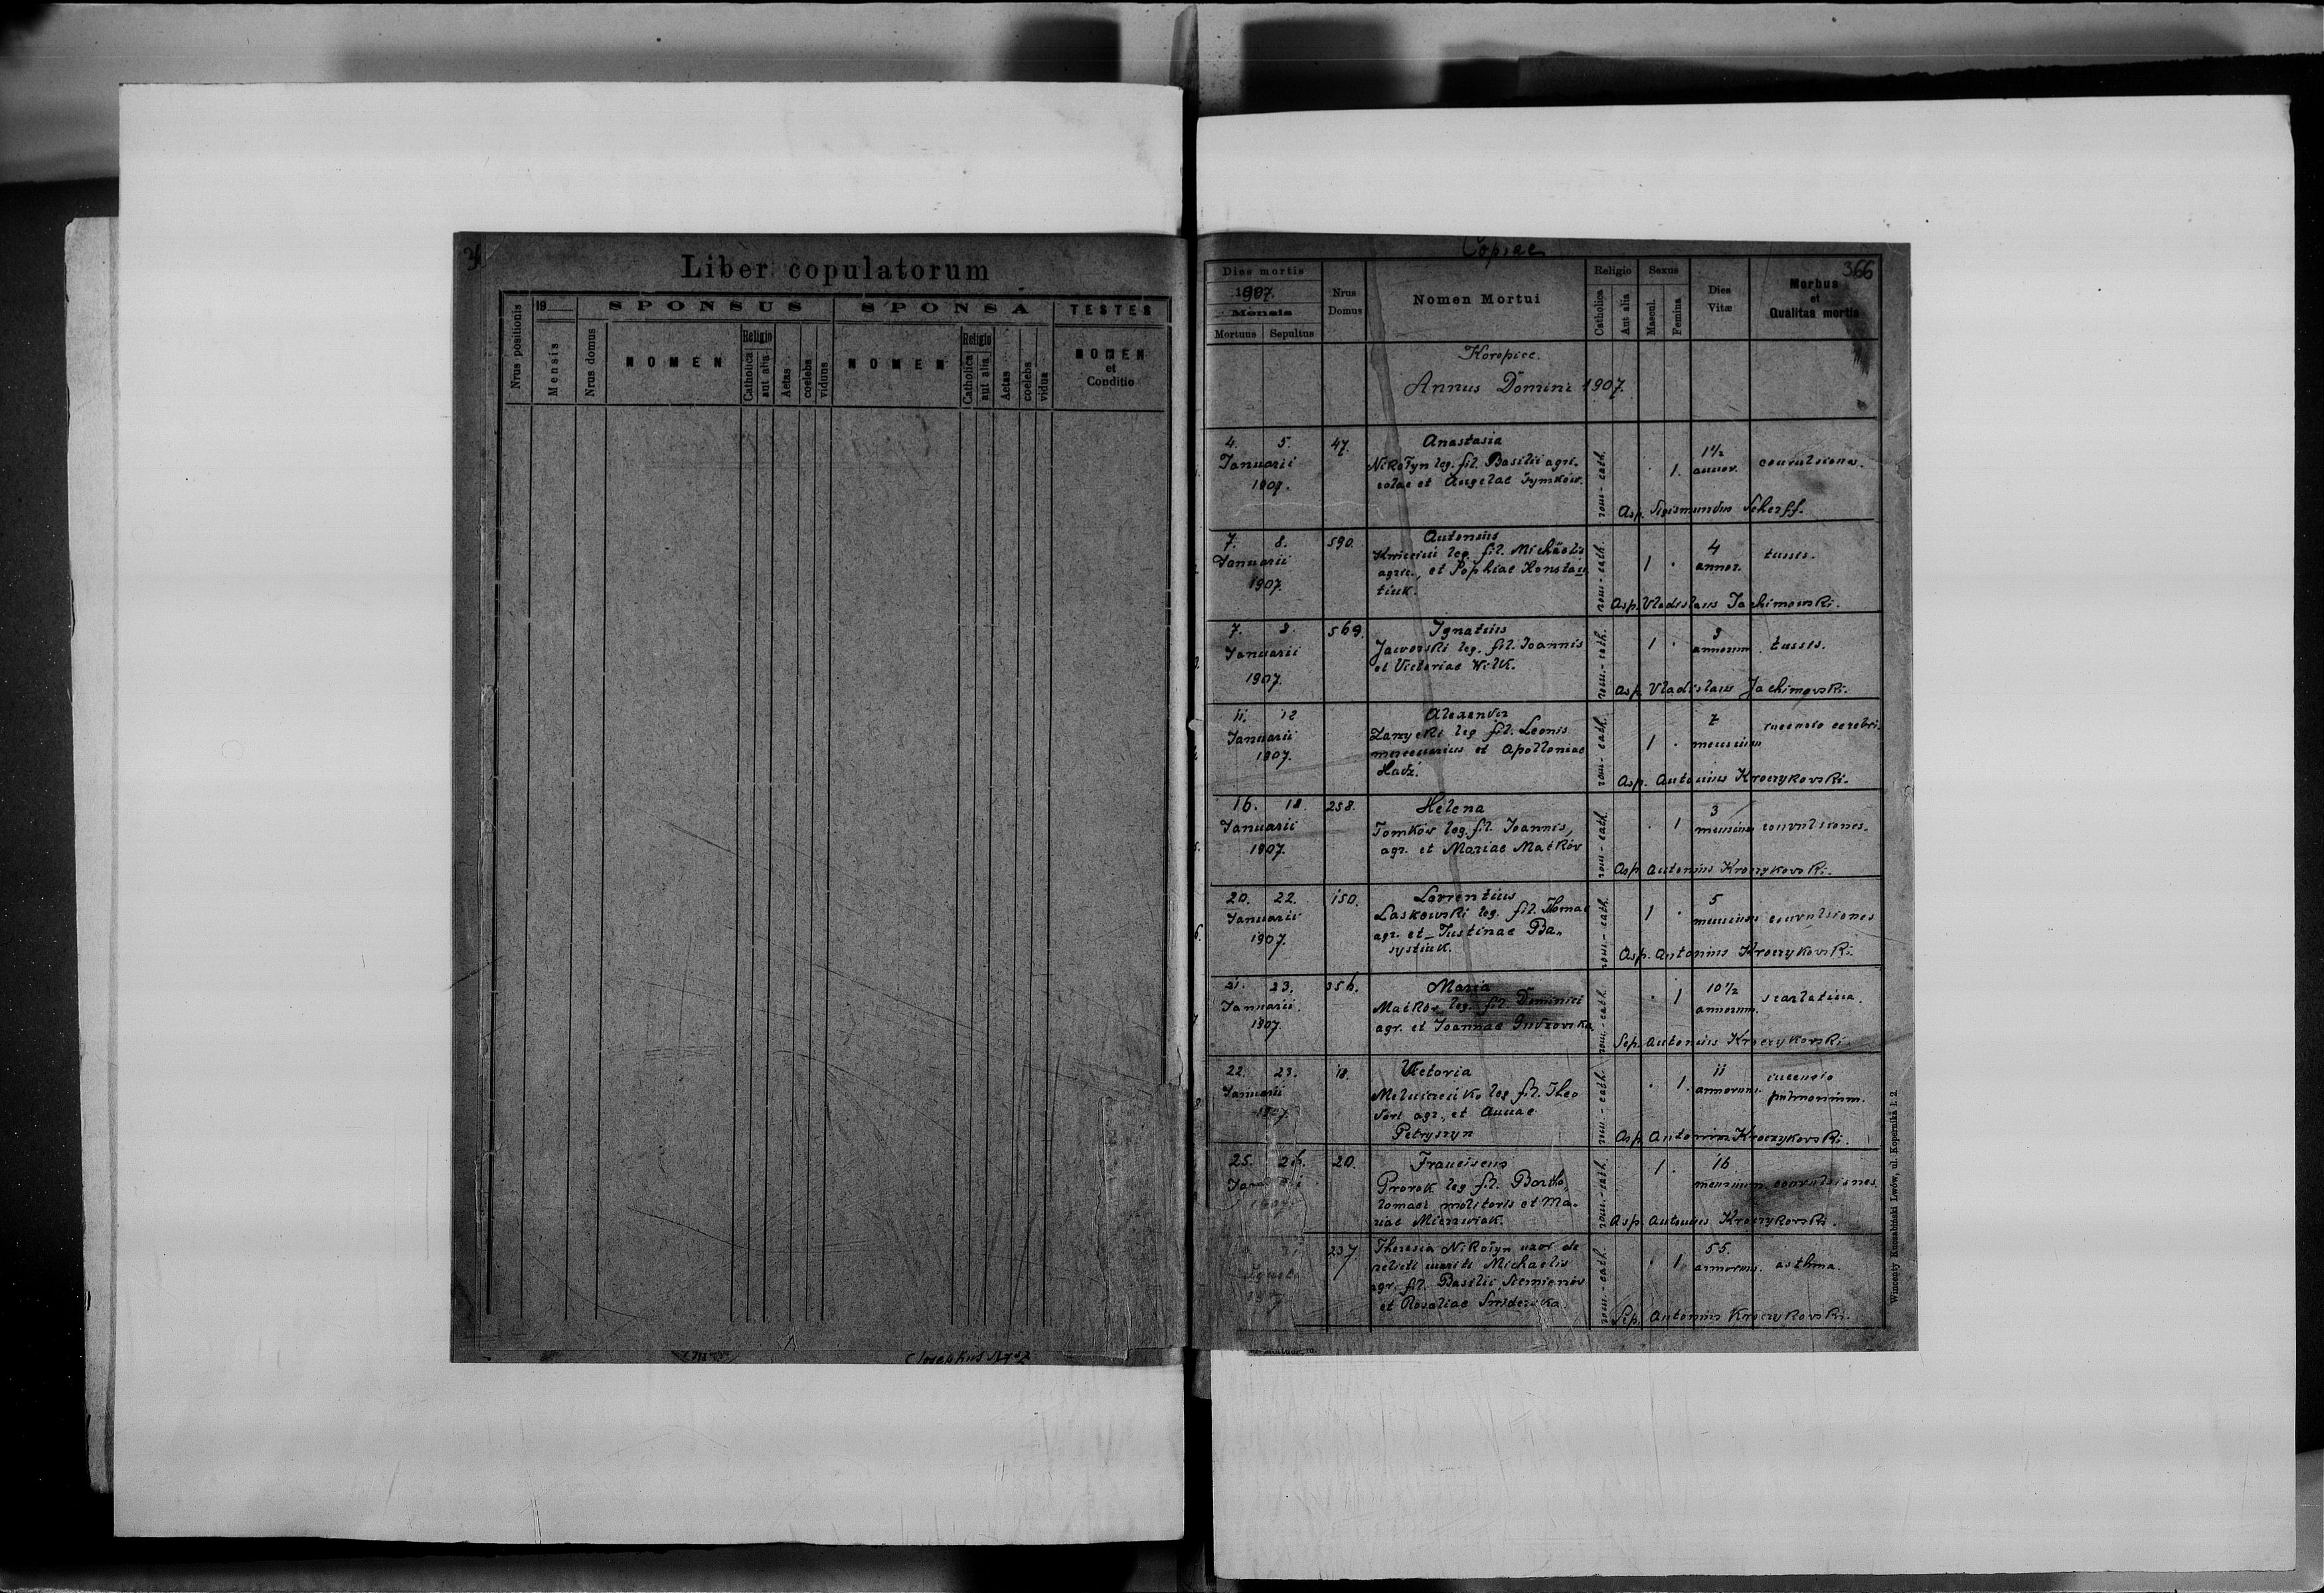 Liber copulatorum
Nrus positionis
19
Mensis
Nrus domus
SPONSUS
NOMEN
Religio
Catholica
aut alia
Aetas
coelebs
viduus
SPONSA
NOMEN
Religio
Catholica
aut alia
Aetas
coelebs
vidua
TESTES
NOMEN
et
Conditio
Copiae
366
Dies mortis
1907.
Mensis
Mortuus
Sepultus
Nrus
Domus
Nomen Mortui
Religio
Catholica
Aut alia
Sexus
Mascul.
Femina
Dies
Vitæ
Morbus
et
Qualitas mortis
Koropiec.
Annus Domini 1907.
4. 5. 47. Anastasia
Januarii
1907.
Nikołyn leg. fil. Basilii agri-
colae et Angelae Tymków.
rom.-cath.
1.
1½
annor.
convulsiones.
Asp. Sigismundus Scherff.
7. 8. 590. Antonius
Januarii
1907.
leg. fil. Michäelis
agric., et Sophiae Konstan
tiuk.
rom.-cath.
1
4
annor.
tussis.
Asp. Vladislaus Jachimowski.
7. 569. Ignatius
Januarii
1907.
Jaworski leg. fil. Joannis
et Victoriae Wilk.
rom.-cath.
1
annorum
tussis.
Asp. Vladislaus Jachimowski.
11. 12 Alexander
Januarii
1907.
Zarzycki leg fil. Leonis
mercenarius et Apolloniae
rom.-cath.
1
7
mensium
cerebri.
Asp. Antonius Kroczykowski.
16. 18. 258. Helena
Januarii
1907.
Tomków leg. fil. Joannis,
agr. et Mariae Maćków
rom.-cath.
1
3
mensium
convulsiones.
Asp. Antonius Kroczykowski.
20. 22. 150. Lorrentius
Januarii
1907.
Laskowski leg. fil. Thomae
agr. et Justinae Ba„
systiuk.
rom.-cath.
1
5
mensium
convulsiones
Asp. Antonius Kroczykowski.
21. 23. Maria
Januarii.
1907.
Maćków leg. fil. Dominici
agr. et Joannae
rom.-cath.
1
10½
annorum.
scarlatina.
Sep. Antonius Kroczykowski.
22. 23. 18. Victoria
Januarii
1907.
leg fil. Theo
dori agr., et Annae
Petryszyn
rom.-cath.
1.
11
annorum.
pulmonium.
Asp. Antonius Kroczykowski.
25. 26. 20. Franciscus
1907.
Prorok leg fil. Bartho„
lomaei molitoris et Ma-
riae
rom.-cath.
1
16
mensium.
convulsiones
Asp. Antonius Kroczykowski.
237. Theresia Nikołyn uxor de
relicti mariti Michaelis
agr. fil. Basilii
et Rosaliae
rom.-cath.
1
55.
annorum.
asthma.
Sep. Antonius Kroczykowski.
Wincenty Kuczabiński Lwów, ul. Kopernika l. 2